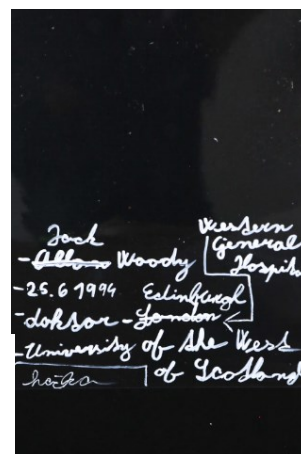 Jack
Western
General
Hospit
- Allan Woody
- 25.6 1994 Edinburgh
- doktor - London
- University of the West
of Scotland